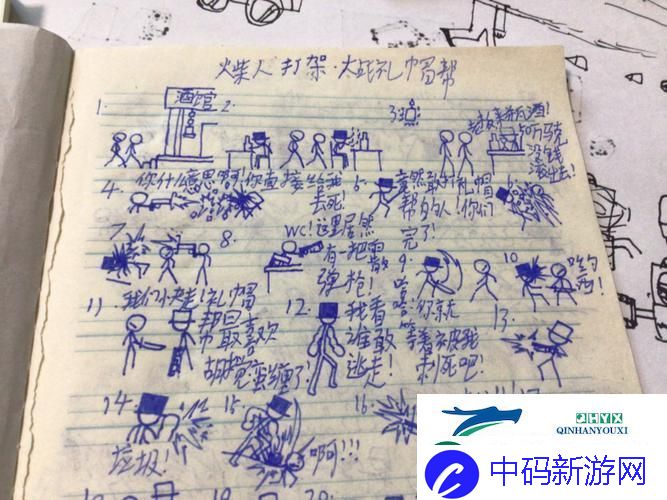 火柴人打架·大战礼帽帮
1.
酒馆
2.
3.
老板来瓶酒!
50万马克
没钱
滚出去!
4.你什么意思啊!你直接给我
去死!
5.竟然敢打礼帽
帮的人!你们
完了!
6.
7.
8.
WC!这里居然
有一把雨散
弹枪!
9.
哈哈
你就
等着被我
刺死吧!
10.
哟西!
11.我们快走!礼帽
帮最喜欢
胡搅蛮缠了
12.
我看
谁敢
逃走!
13.
14.
垃圾!
15.
啊!!!
16.
QHYX
QINHANYOUXI
中码新游网